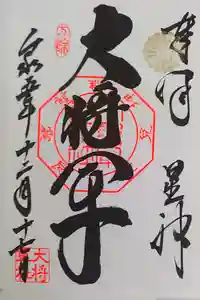 奉拝 星神
大将軍
令和五年十二月十七日
大将